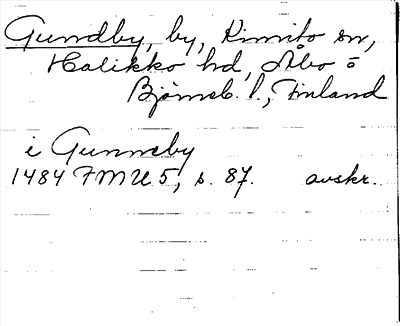 Gundby, by, Kimito sn,
Halikko hd, Åbo o
Björneb. l., Finland
i Gunnsby
1484 FMU 5, s. 87. avskr.